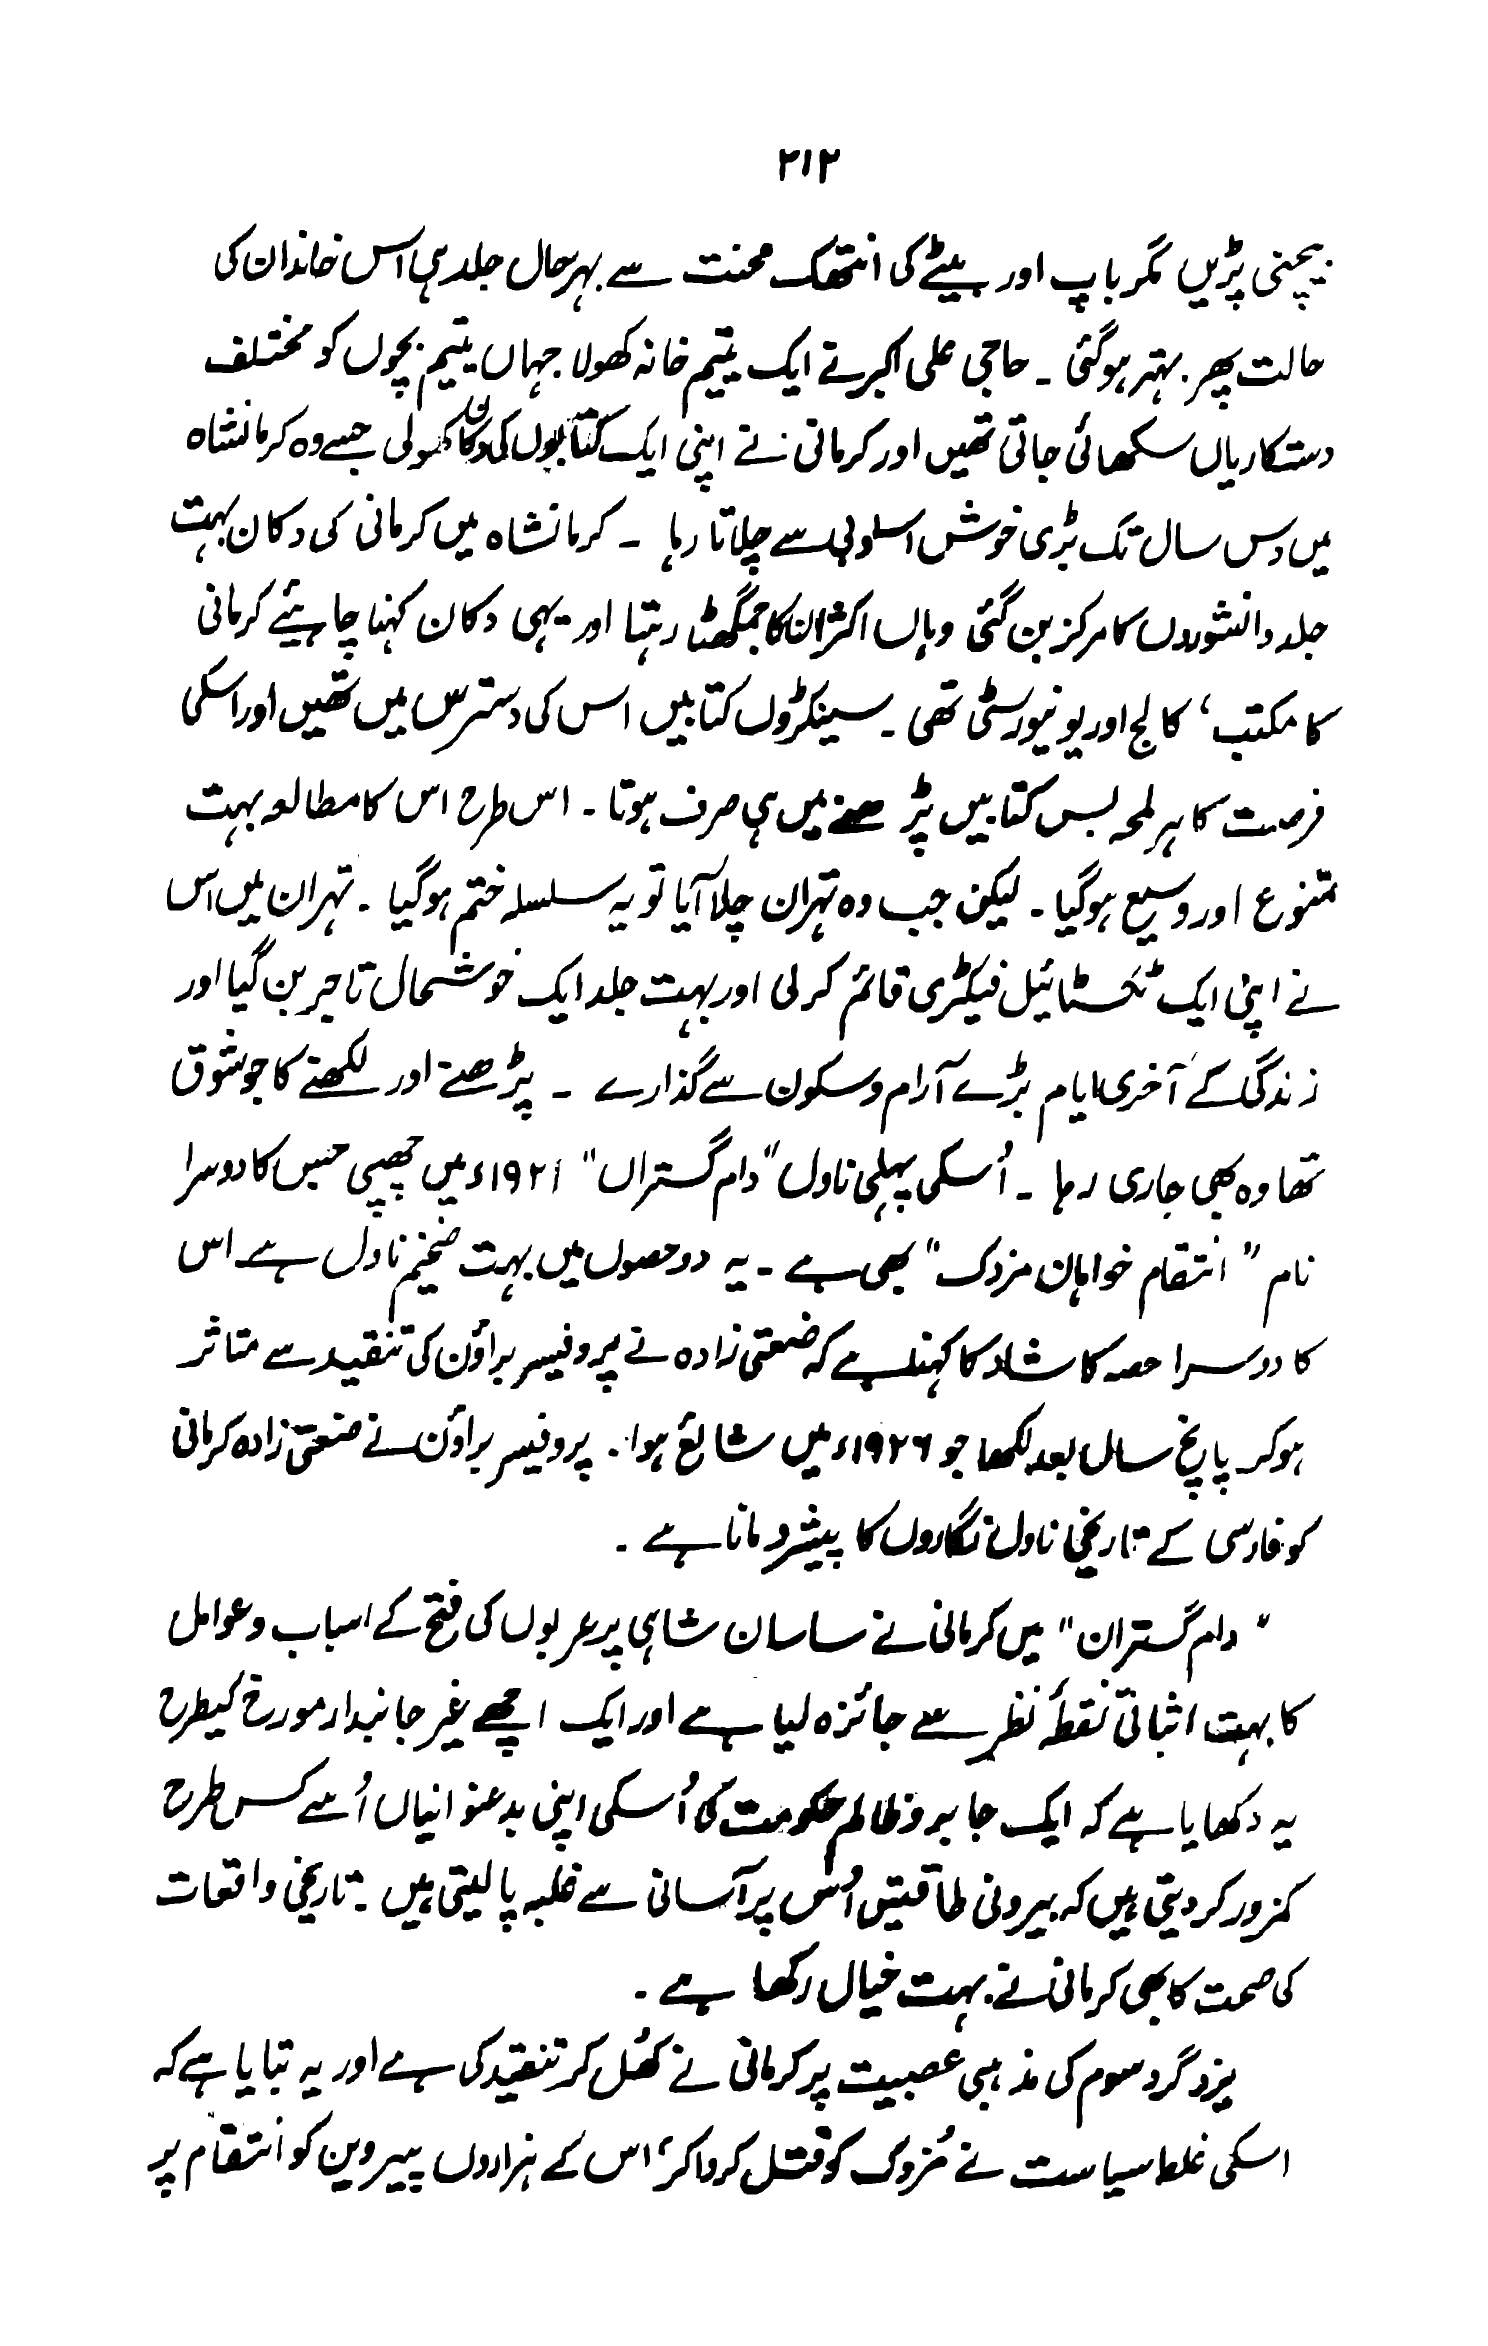 ۲۱۲
بیچنی پڑیں مگر باپ اور بیٹے کی انتھک محنت سے بہرحال جلد ہی اس خاندان کی
حالت پھر بہتر ہو گئی ۔ حاجی علی اکبر نے ایک یتیم خانہ کھولا جہاں یتیم بچوں کو مختلف
دستکاریاں سکھائی جاتی تھیں اور کرمانی نے اپنی ایک کتابوں کی دکان کھولی جسے وہ کرمانشاہ
میں دس سال تک بڑی خوش اسلوبی سے چلاتا رہا ۔ کرمانشاہ میں کرمانی کی دکان بہت
جلد دانشوروں کا مرکز بن گئی وہاں اکثر ان کا جمگھٹا رہتا اور یہی دکان کہنا چاہئیے کرمانی
کا مکتب، کالج اور یونیورسٹی تھی ۔ سینکڑوں کتابیں اس کی دسترس میں تھیں اور اسکی
فرصت کا ہر لمحہ بس کتابیں پڑھنے میں ہی صرف ہوتا ۔ اس طرح اس کا مطالعہ بہت
متنوع اور وسیع ہوگیا ۔ لیکن جب وہ تہران چلا آیا تو یہ سلسلہ ختم ہوگیا ۔ تہران میں اس
نے اپنی ایک ٹکسٹائیل فیکٹری قائم کرلی اور بہت جلد ایک خوشحال تاجر بن گیا اور
زندگی کے آخری ایام بڑے آرام و سکون سے گذارے ۔ پڑھنے اور لکھنے کا جو شوق
تھا وہ بھی جاری رہا ۔ اُسکی پہلی ناول "دام گستراں" ۱۹۲۱ء میں چھپی جس کا دوسرا
نام "انتقام خواہان مزدک" بھی ہے ۔ یہ دو حصوں میں بہت ضخیم ناول ہے ۔ اس
کا دوسرا حصہ کا شاد کا کہنا ہے کہ صنعتی زادہ نے پروفیسر براؤن کی تنقید سے متاثر
ہوکر پانچ سال بعد لکھا جو ۱۹۲۶ء میں شائع ہوا ۔ پروفیسر براؤن نے صنعتی زادہ کرمانی
کو فارسی کے تاریخی ناول نگاروں کا پیشرو مانا ہے ۔
"دام گستران" میں کرمانی نے ساسان شاہی پر عربوں کی فتح کے اسباب و عوامل
کا بہت اثباتی نقطۂ نظر سے جائزہ لیا ہے اور ایک اچھے غیر جانبدار مورخ کیطرح
یہ دکھایا ہے کہ ایک جابر و ظالم حکومت کی اُسکی اپنی بدعنوانیاں اُسے کس طرح
کمزور کر دیتی ہیں کہ بیرونی طاقتیں اُس پر آسانی سے غلبہ پا لیتی ہیں ۔ تاریخی واقعات
کی صحت کا بھی کرمانی نے بہت خیال رکھا ہے ۔
یزد گرد سوم کی مذہبی عصبیت پر کرمانی نے کھُل کر تنقید کی ہے اور یہ بتایا ہے کہ
اسکی غلط سیاست نے مُزدک کو قتل کرواکر، اس کے ہزاروں پیروین کو انتقام پر